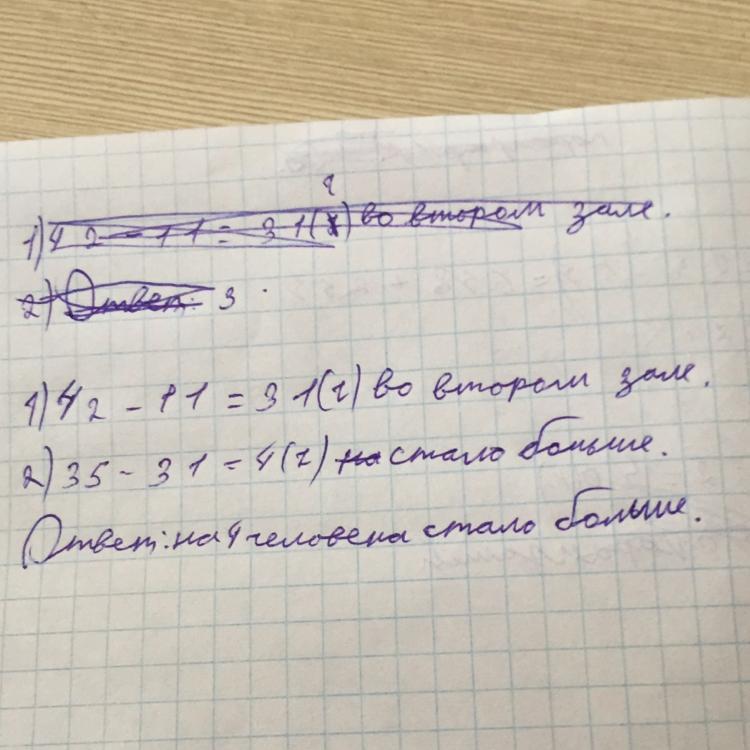 1) 42 - 11 = 31(ч) во втором зале.
2) Ответ: 3
1) 42 - 11 = 31(ч) во втором зале.
2) 35 - 31 = 4(ч) на стало больше.
Ответ: на 4 человека стало больше.